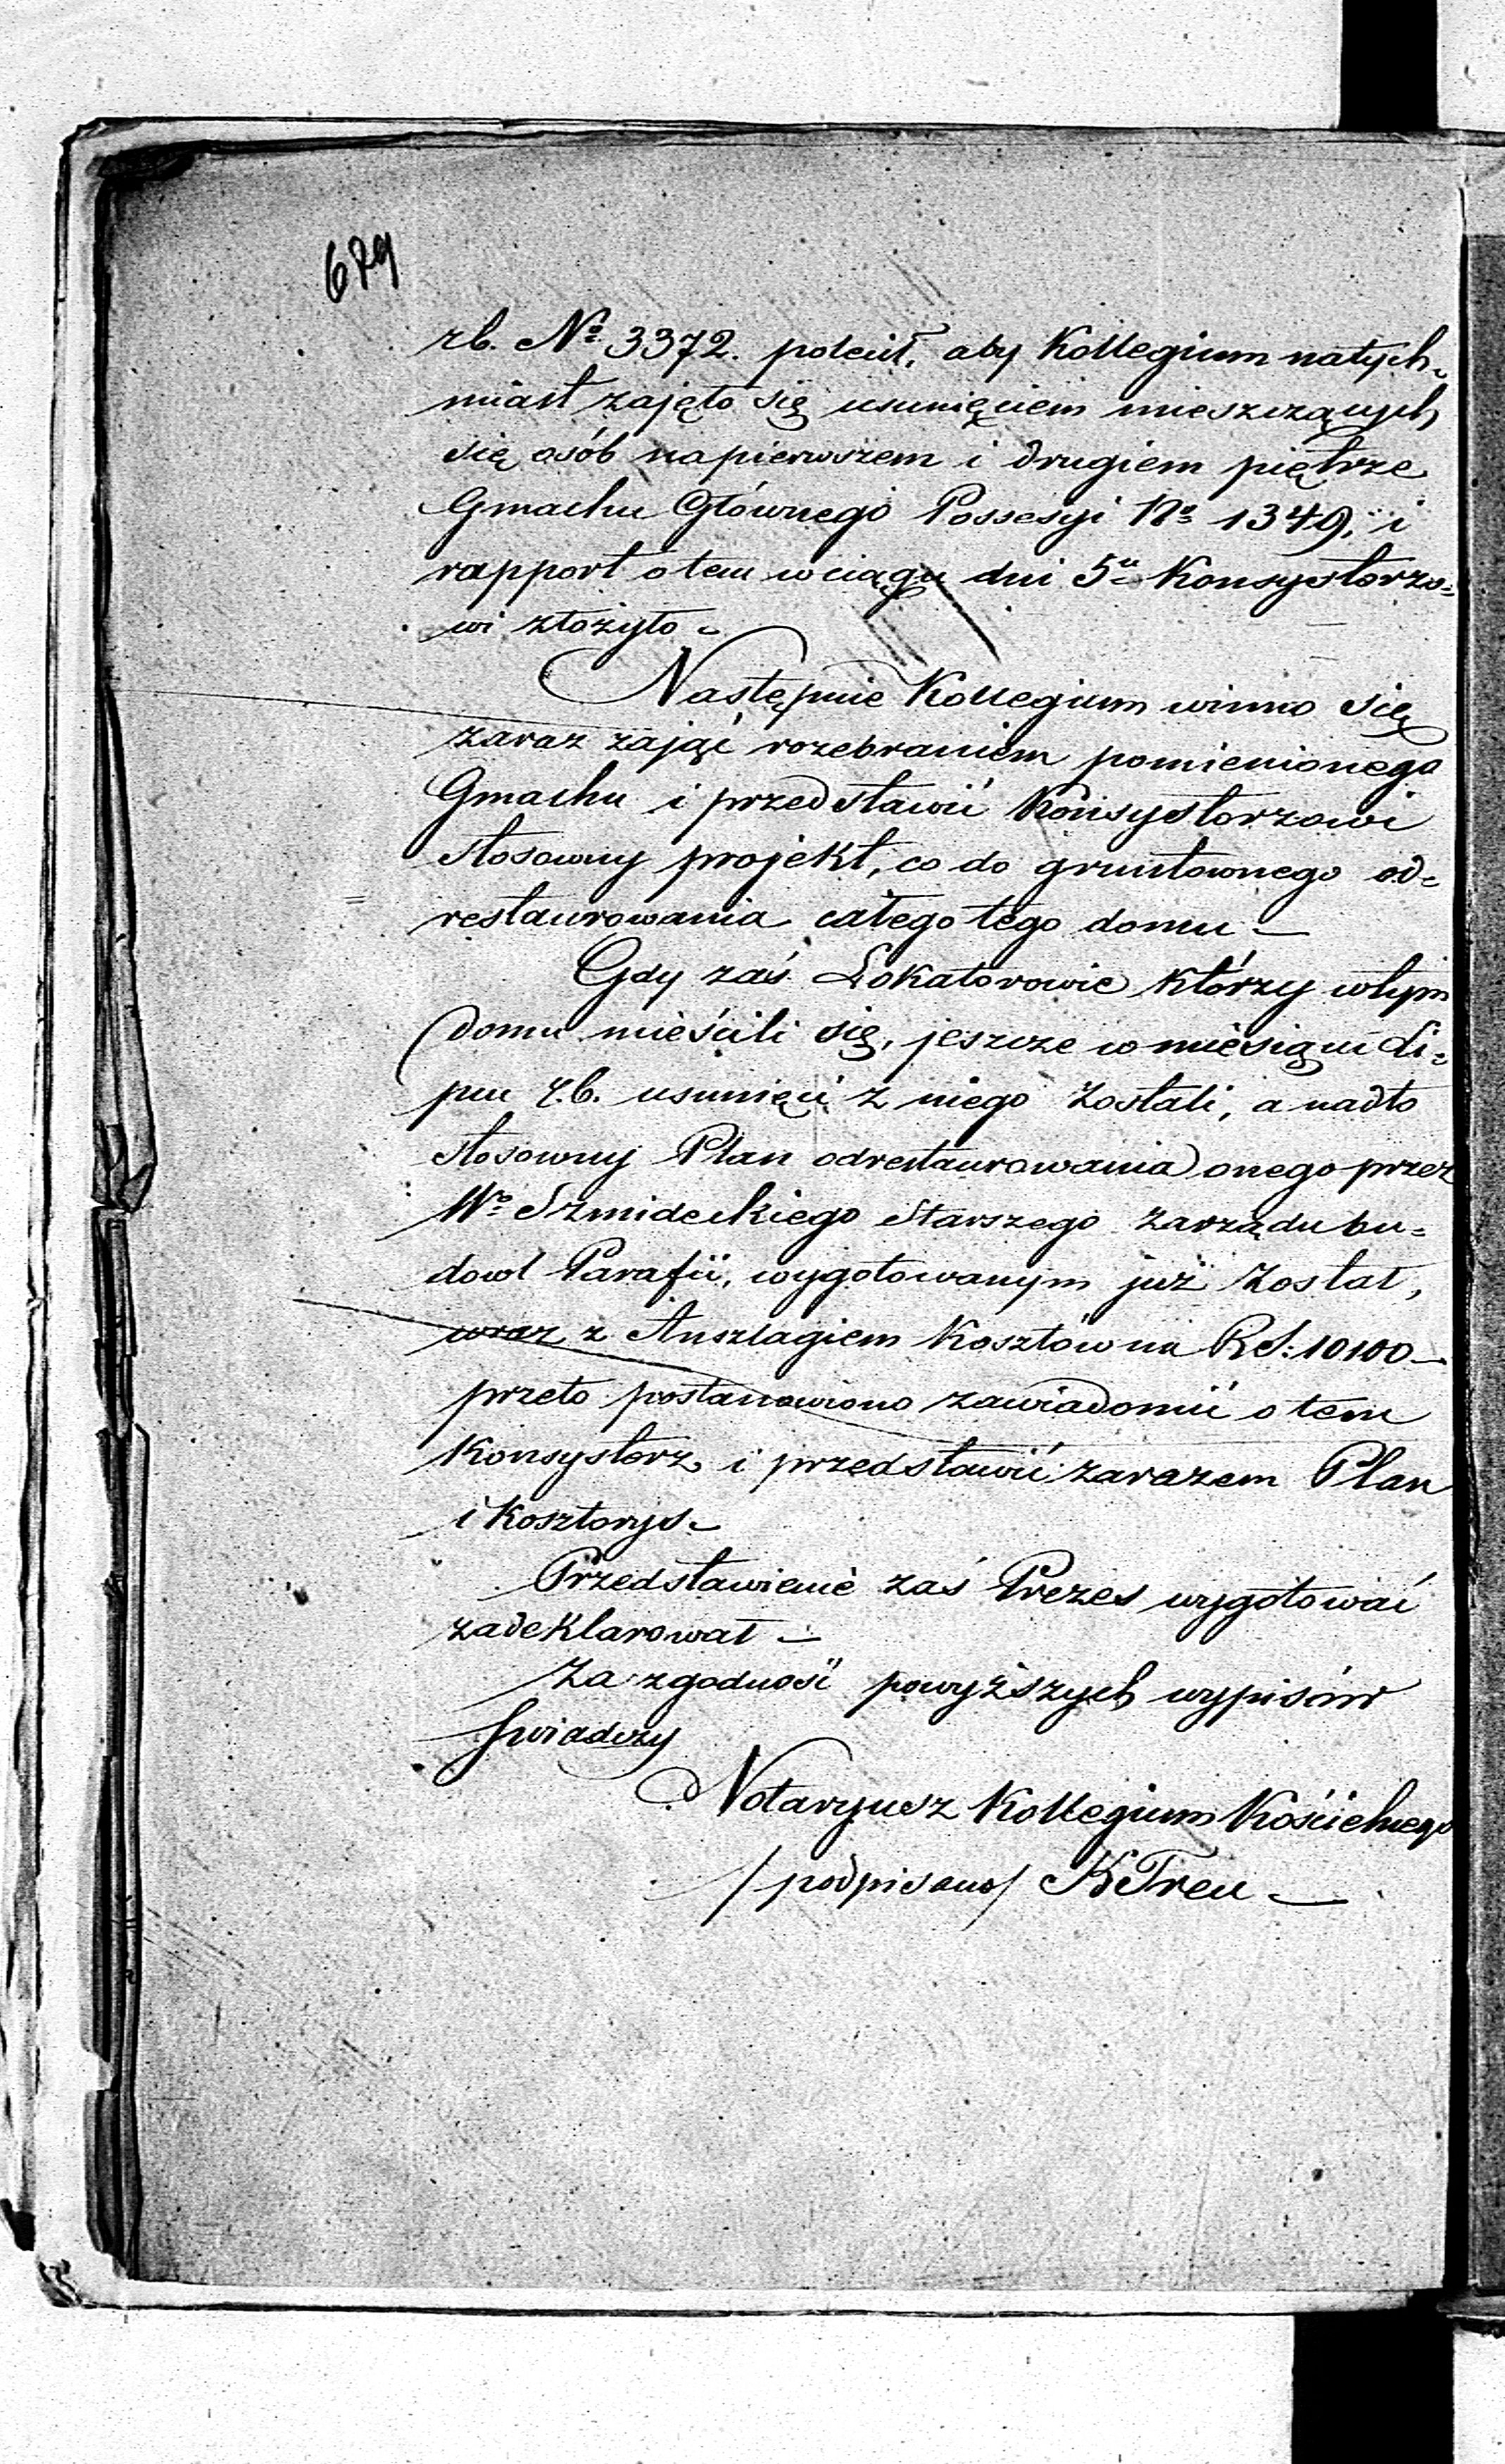 679
rb. No 3372. polecił, aby Kollegium natych-
miast zajęło się usunięciem mieszczących
się osób na pierwszem i drugiem piętrze
Gmachu Głównego Possesyi No 1349, i
rapport o tem w ciągu dni 5u Konsystorzo=
wi złożyło -
Następnie Kollegium winno się
zaraz zająć rozebraniem pomienionego
Gmachu i przedstawić Konsystorzowi
stosowny projekt, co do gruntownego od=
restaurowania całego tego domu -
Gdy zaś Lokatorowie którzy w tym
domu mieścili się, jeszcze w miesiącu Li=
pcu r.b. usunięci z niego zostali, a nadto
stosowny Plan odrestaurowania onego przez
Wo Szmideckiego Starszego Zarządu bu=
dowl Parafii, wygotowanym już został,
wraz z Anszlagiem Kosztów na RS: 10100 -
przeto postanowiono zawiadomić o tem
Konsystorz i przedstawić zarazem Plan
i Kosztorys -
Przedstawienie zaś Prezes wygotować
zadeklarował -
Za zgodność powyższych wypisów
świadczy
Notaryusz Kollegium Kościelnego
/podpisano/ K Treu -